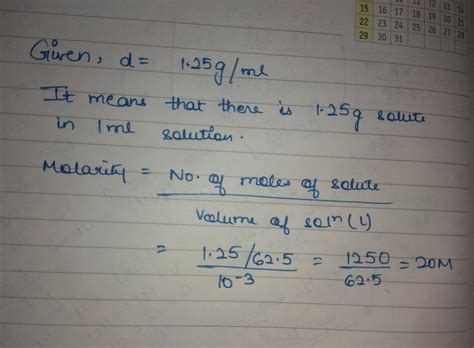 11 12 13 14
15 16 17 18 19 20 21
22 23 24 25 26 27 28
29 30 31
Given, d = 1.25g/ml
It means that there is 1.25g solute
in 1ml solution.
Molarity = No. of moles of solute
Volume of solⁿ (L)
= 1.25/62.5 = 1250 = 20M
10⁻³ 62.5